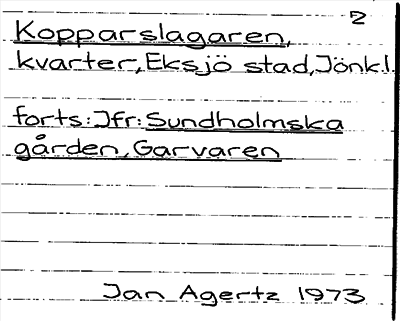 2
Kopparslagaren,
kvarter, Eksjö stad, Jönkl.
forts: Jfr: Sundholmska
gården, Garvaren
Jan Agertz 1973